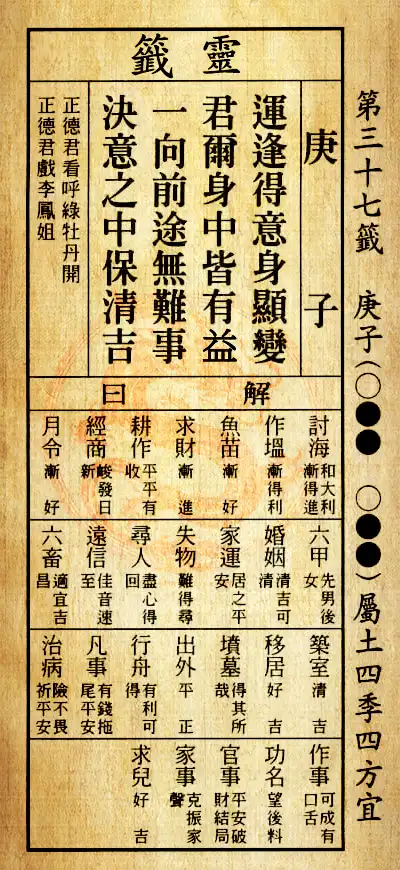 第三十七籤 庚子(○●● ○●●)屬土四季四方宜
靈籤
庚子
運逢得意身顯變
君爾身中皆有益
一向前途無難事
決意之中保清吉
正德君看呼綠牡丹開
正德君戲李鳳姐
解曰
討海 漸得進和大利
作塭 漸得利
魚苗 漸好
求財 漸進
耕作 平平有收
經商 峻發日新
月令 漸好
六甲 先男後女
婚姻 清吉可清
家運 居之平安
失物 難得尋
尋人 盡心得回
遠信 佳音速至
六畜 適宜吉昌
築室 清吉
移居 好吉
墳墓 得其所哉
出外 平正
行舟 有利可得
凡事 有錢拖尾平安
治病 險不畏祈平安
作事 可成有口舌
功名 望後科
官事 平安破財結局
家事 克振家聲
求兒 好吉